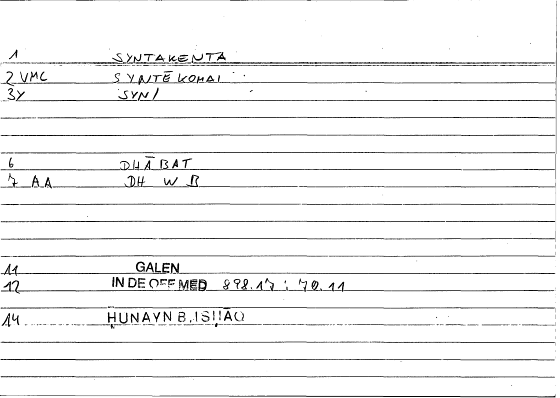 1 SYNTAKENTA
2 VMC SYNTĒKOMAI
3Y SYN/
6 DHĀBAT
7 AA DH W B
11 GALEN
12 IN DE OFF MED 898.17 : 70.11
14 ḤUNAYN B. ISḤĀQ